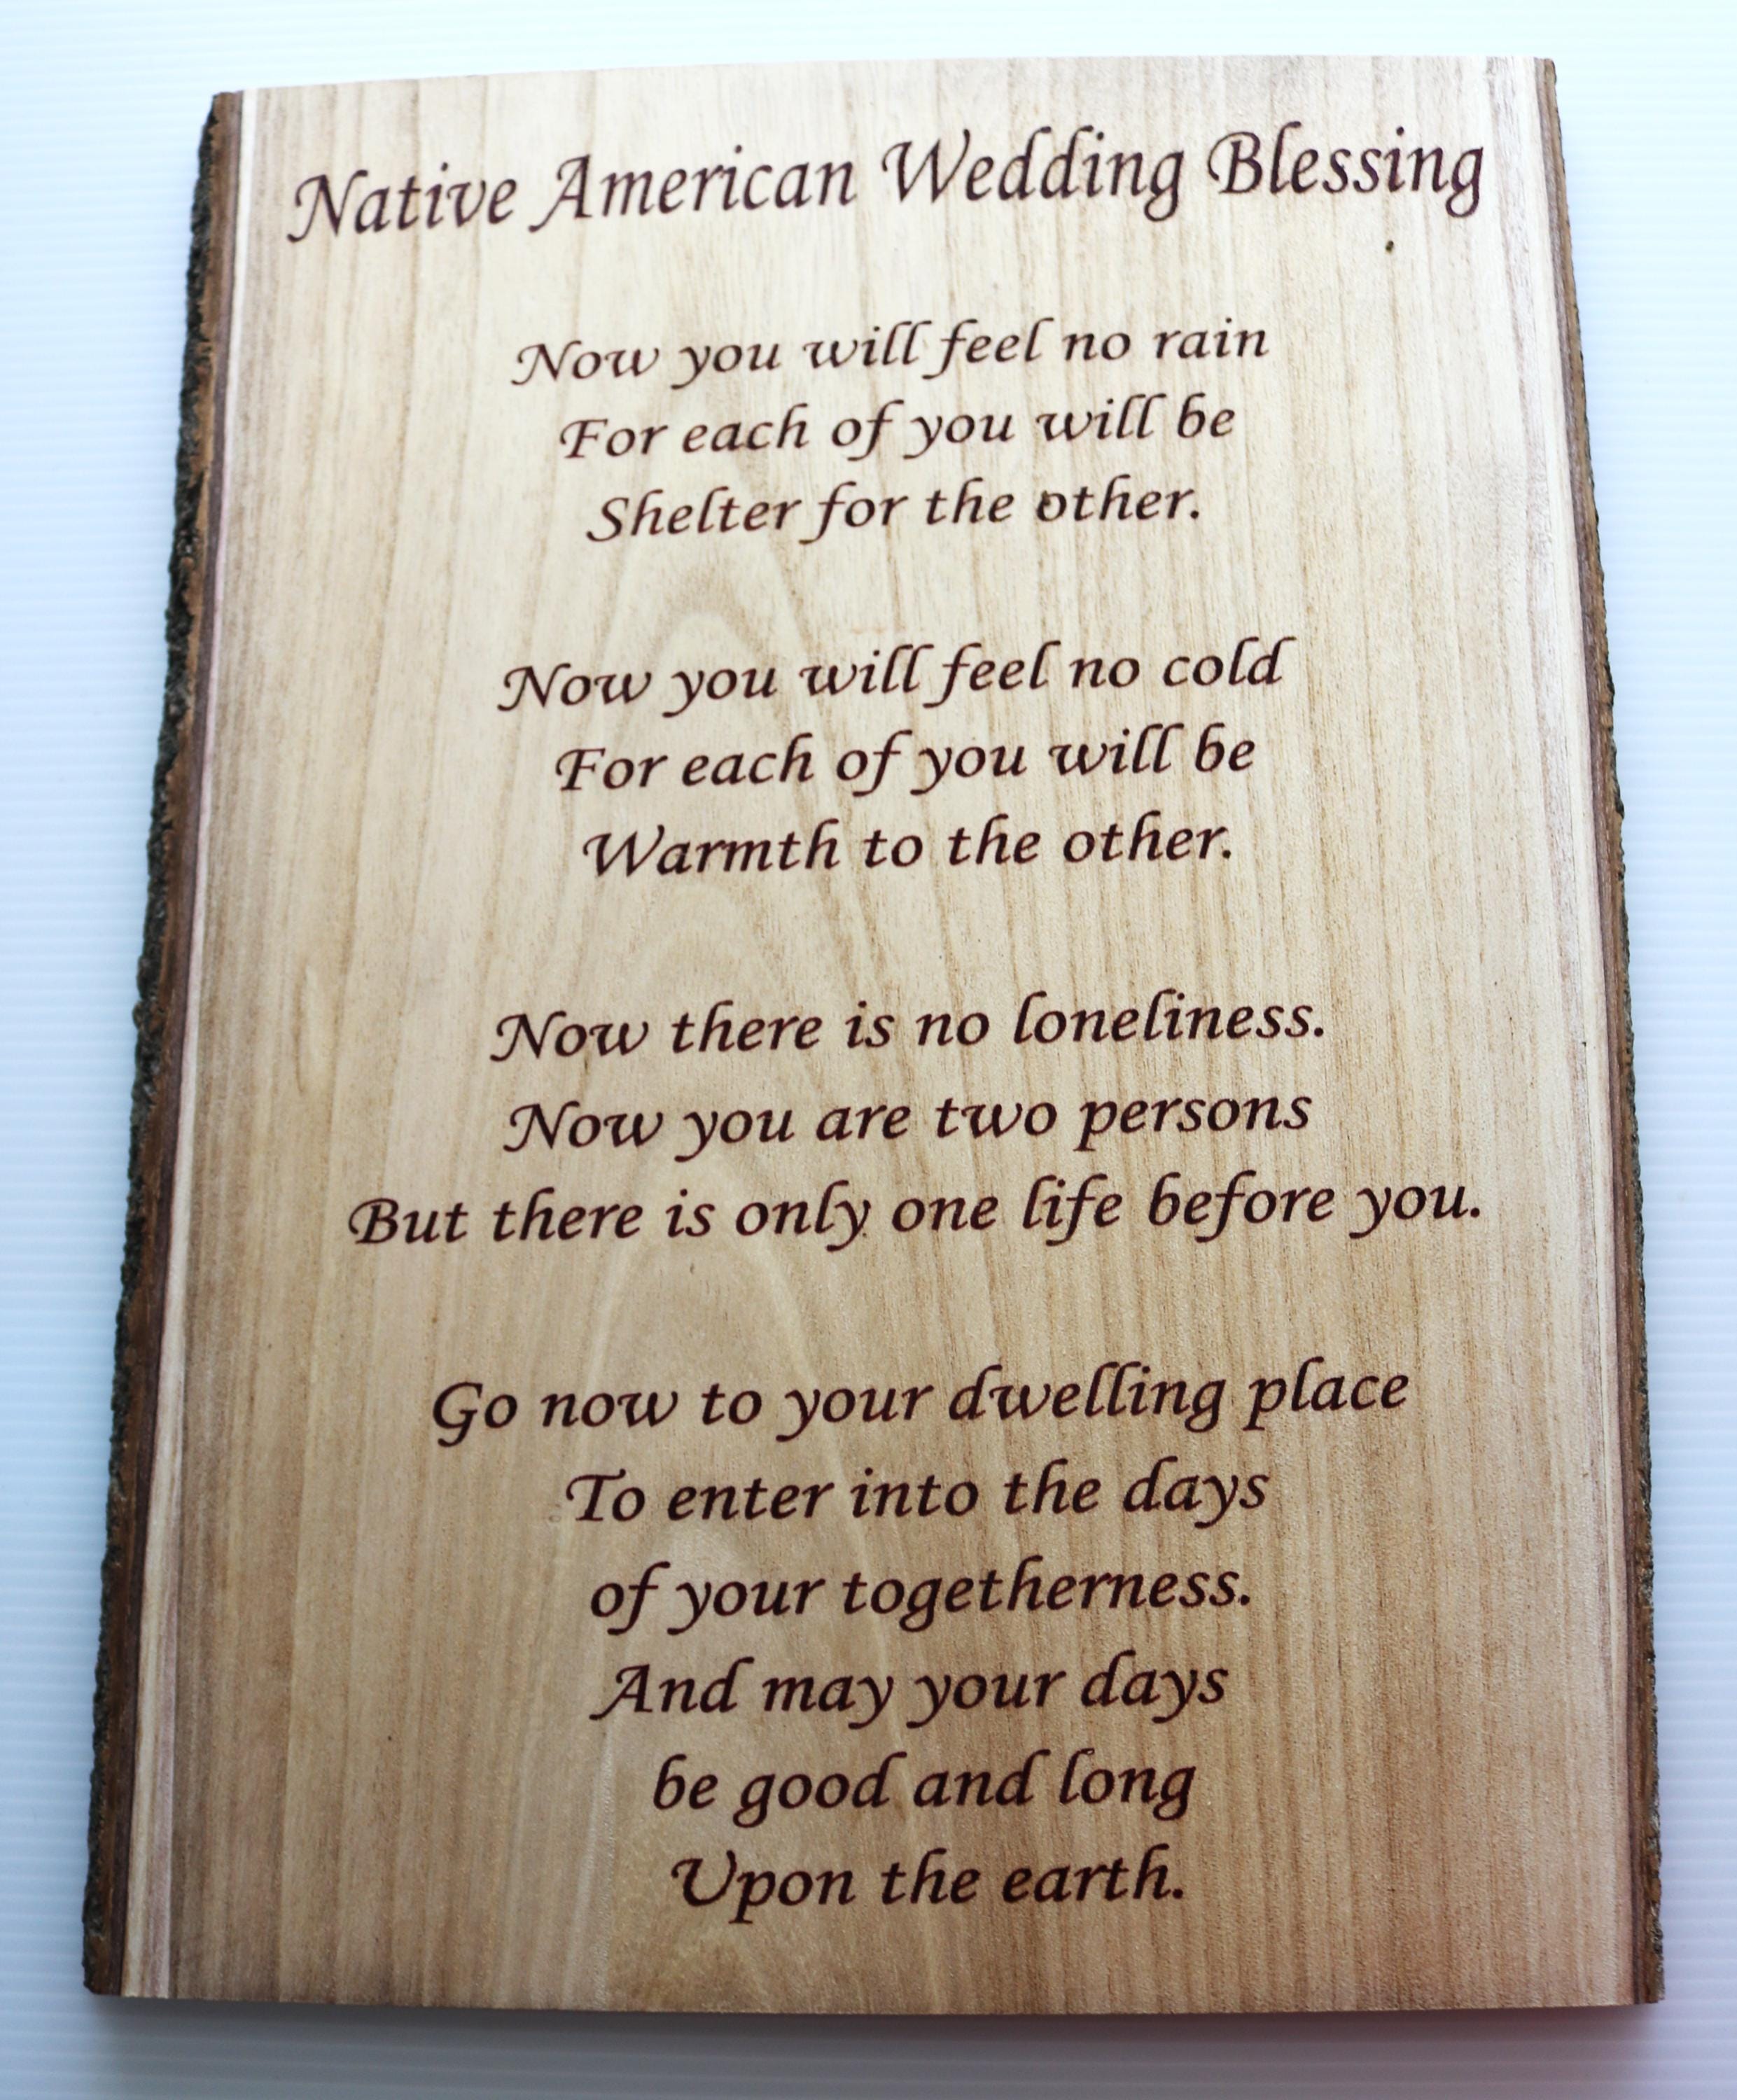 Native American Wedding Blessing
Now you will feel no rain
For each of you will be
Shelter for the other.
Now you will feel no cold
For each of you will be
Warmth to the other.
Now there is no loneliness.
Now you are two persons
But there is only one life before you.
Go now to your dwelling place
To enter into the days
of your togetherness.
And may your days
be good and long
Upon the earth.